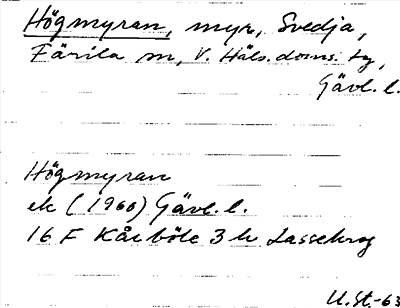 Högmyran, myr, Svedja,
Färila sn, V. Häls. doms. tg,
Gävl. l.
Högmyran
ek (1960) Gävl. l.
16 F Kårböle 3 h Lassekrog
U.St.-63